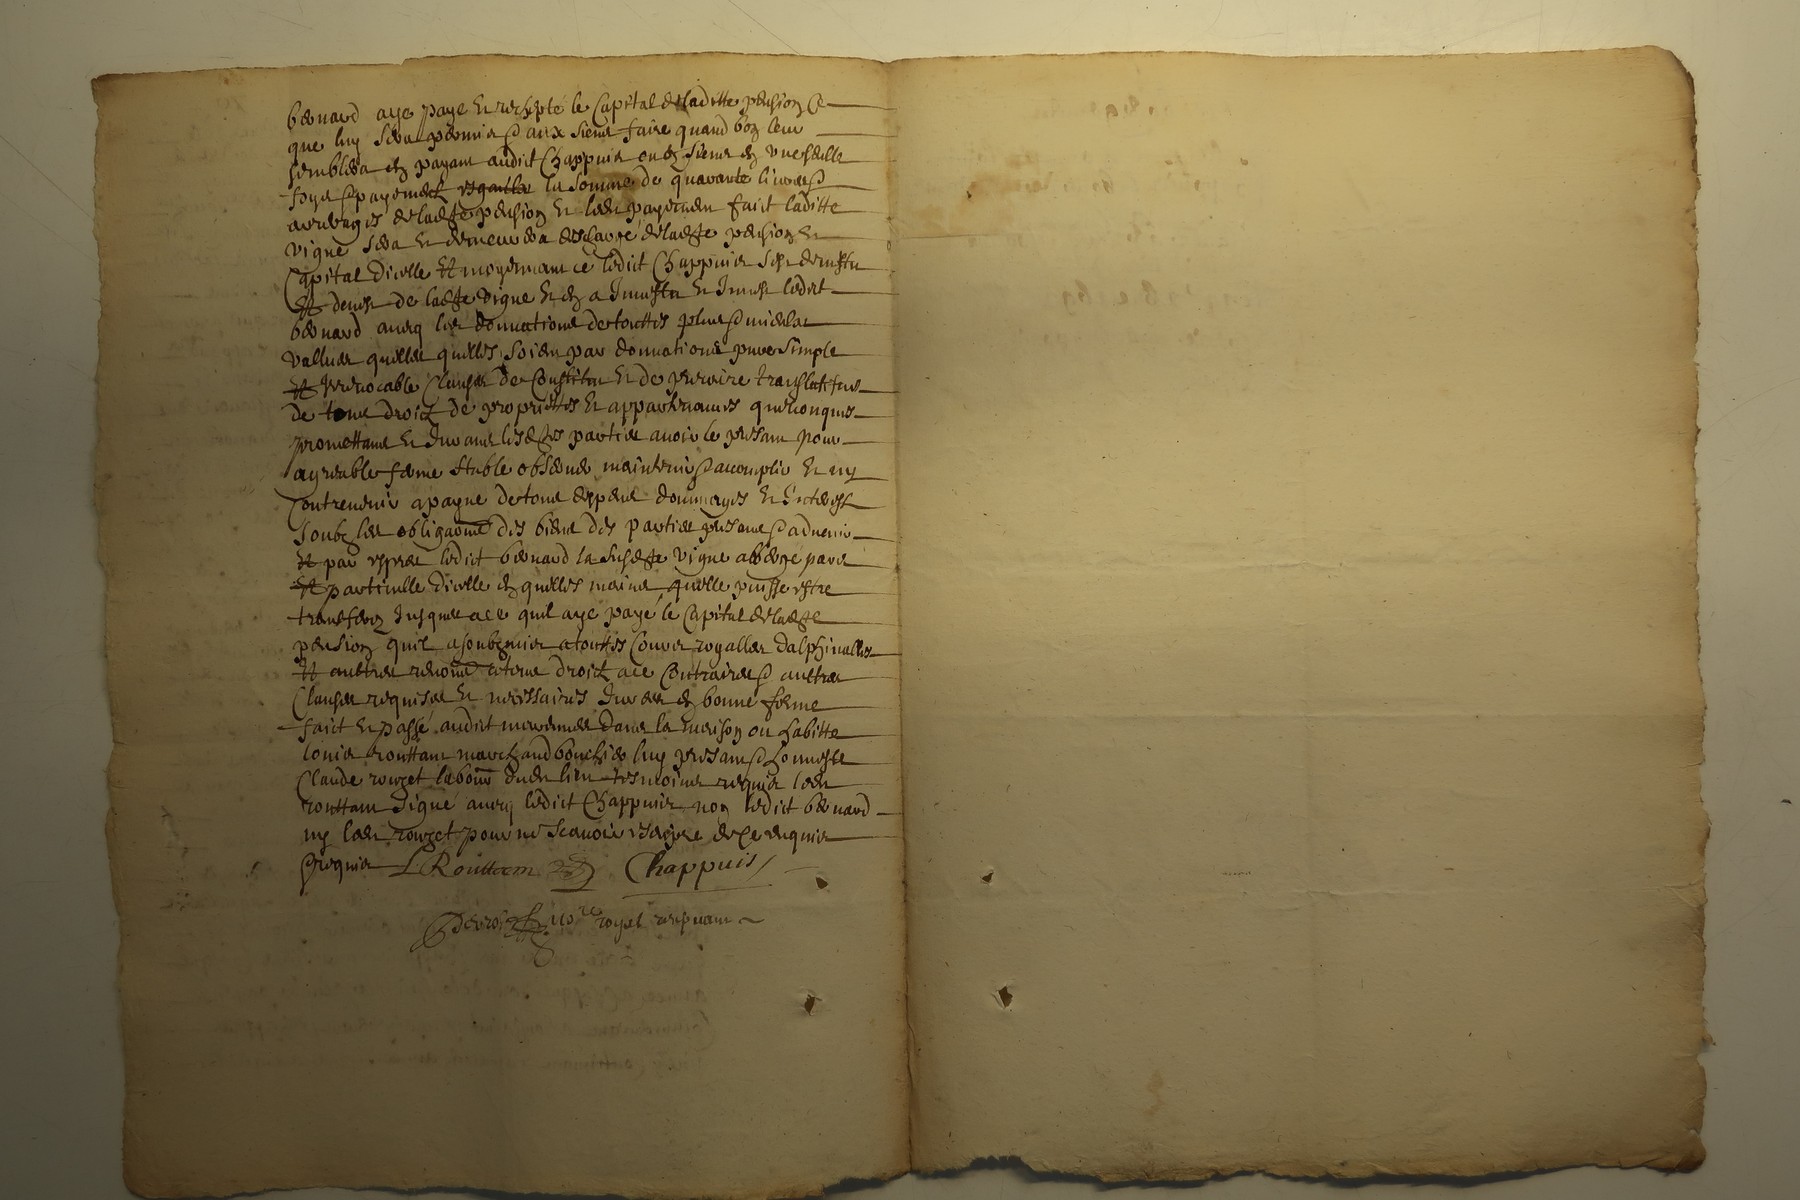 bernard aye paye et rachepté le Capital de laditte pension Ce
que luy sera permis & aux siens faire quand bon leur
semblera en payant audict Chappuis ou es siens en une seulle
foys & payement la somme de quarante livres &
arrerages de ladte pension et led payement faict laditte
vigne sera et demeurera deschargé de ladte pension et
Capital dicelle Et moyennant ce ledict Chappuis sest demistu
Et devest de ladte vigne et en a Investu et Invest ledict
bernard avecq les donnations de touttes plus & mieslar
vallues quelles quelles soient par donnations pure simple
Et Irrevocable Clauses de Constitu et de precaire translatifves
de tous droictz de proprietes et appartenances quelconques
promettans et Jurans lesdtes parties avoir le presant pour
agreable ferme stable observer maintenir & accomplir et ny
Contrevenir a payne de tous despens dommages et Interest
soubz les obligaons des biens des parties presans & advenir
Et par expres ledict bernard la susdte vigne alberge pars
Et particulle dicelle en quelles mains quelle puisse estre
transferé Jusques a ce quil aye payé le Capital de ladte
pension quil a soubzmis a touttes Cours royalles dalphinalles
Et aultres renonce a tous droictz a ce Contraires & aultres
Clauses requises et necessaires Jurees en bonne forme
faict et passé audict dans la maison ou habitte
louis routtam marchand bouchier luy presant & honneste
Claude rouget labour dudict lieu tesmoins requis led
routtam signé avecq ledict Chappuis non ledict bernard
ny led rouget pour ne scavoir escripre de ce enquis
& requis L Routtam Chappuis
nore royal recepvant